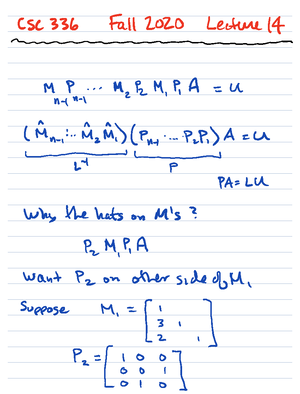 CSC 336 Fall 2020 Lecture 14
M_{n-1} P_{n-1} ... M_2 P_2 M_1 P_1 A = U
(M̂_{n-1} ... M̂_2 M̂_1)(P_{n-1} ... P_2 P_1) A = U
L^{-1} P
PA = LU
Why the hats on M's?
P_2 M_1 P_1 A
Want P_2 on other side of M_1
Suppose M_1 = [ 1
3 1
2 1 ]
P_2 = [ 1 0 0
0 0 1
0 1 0 ]